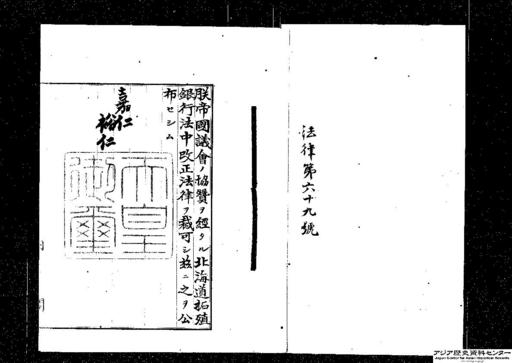 法律第六十九號
朕帝國議會ノ協贊ヲ經タル北海道拓殖
銀行法中改正法律ヲ裁可シ茲ニ之ヲ公
布セシム
嘉仁
裕仁
天皇
御璽
アジア歴史資料センター
Japan Center for Asian Historical Records